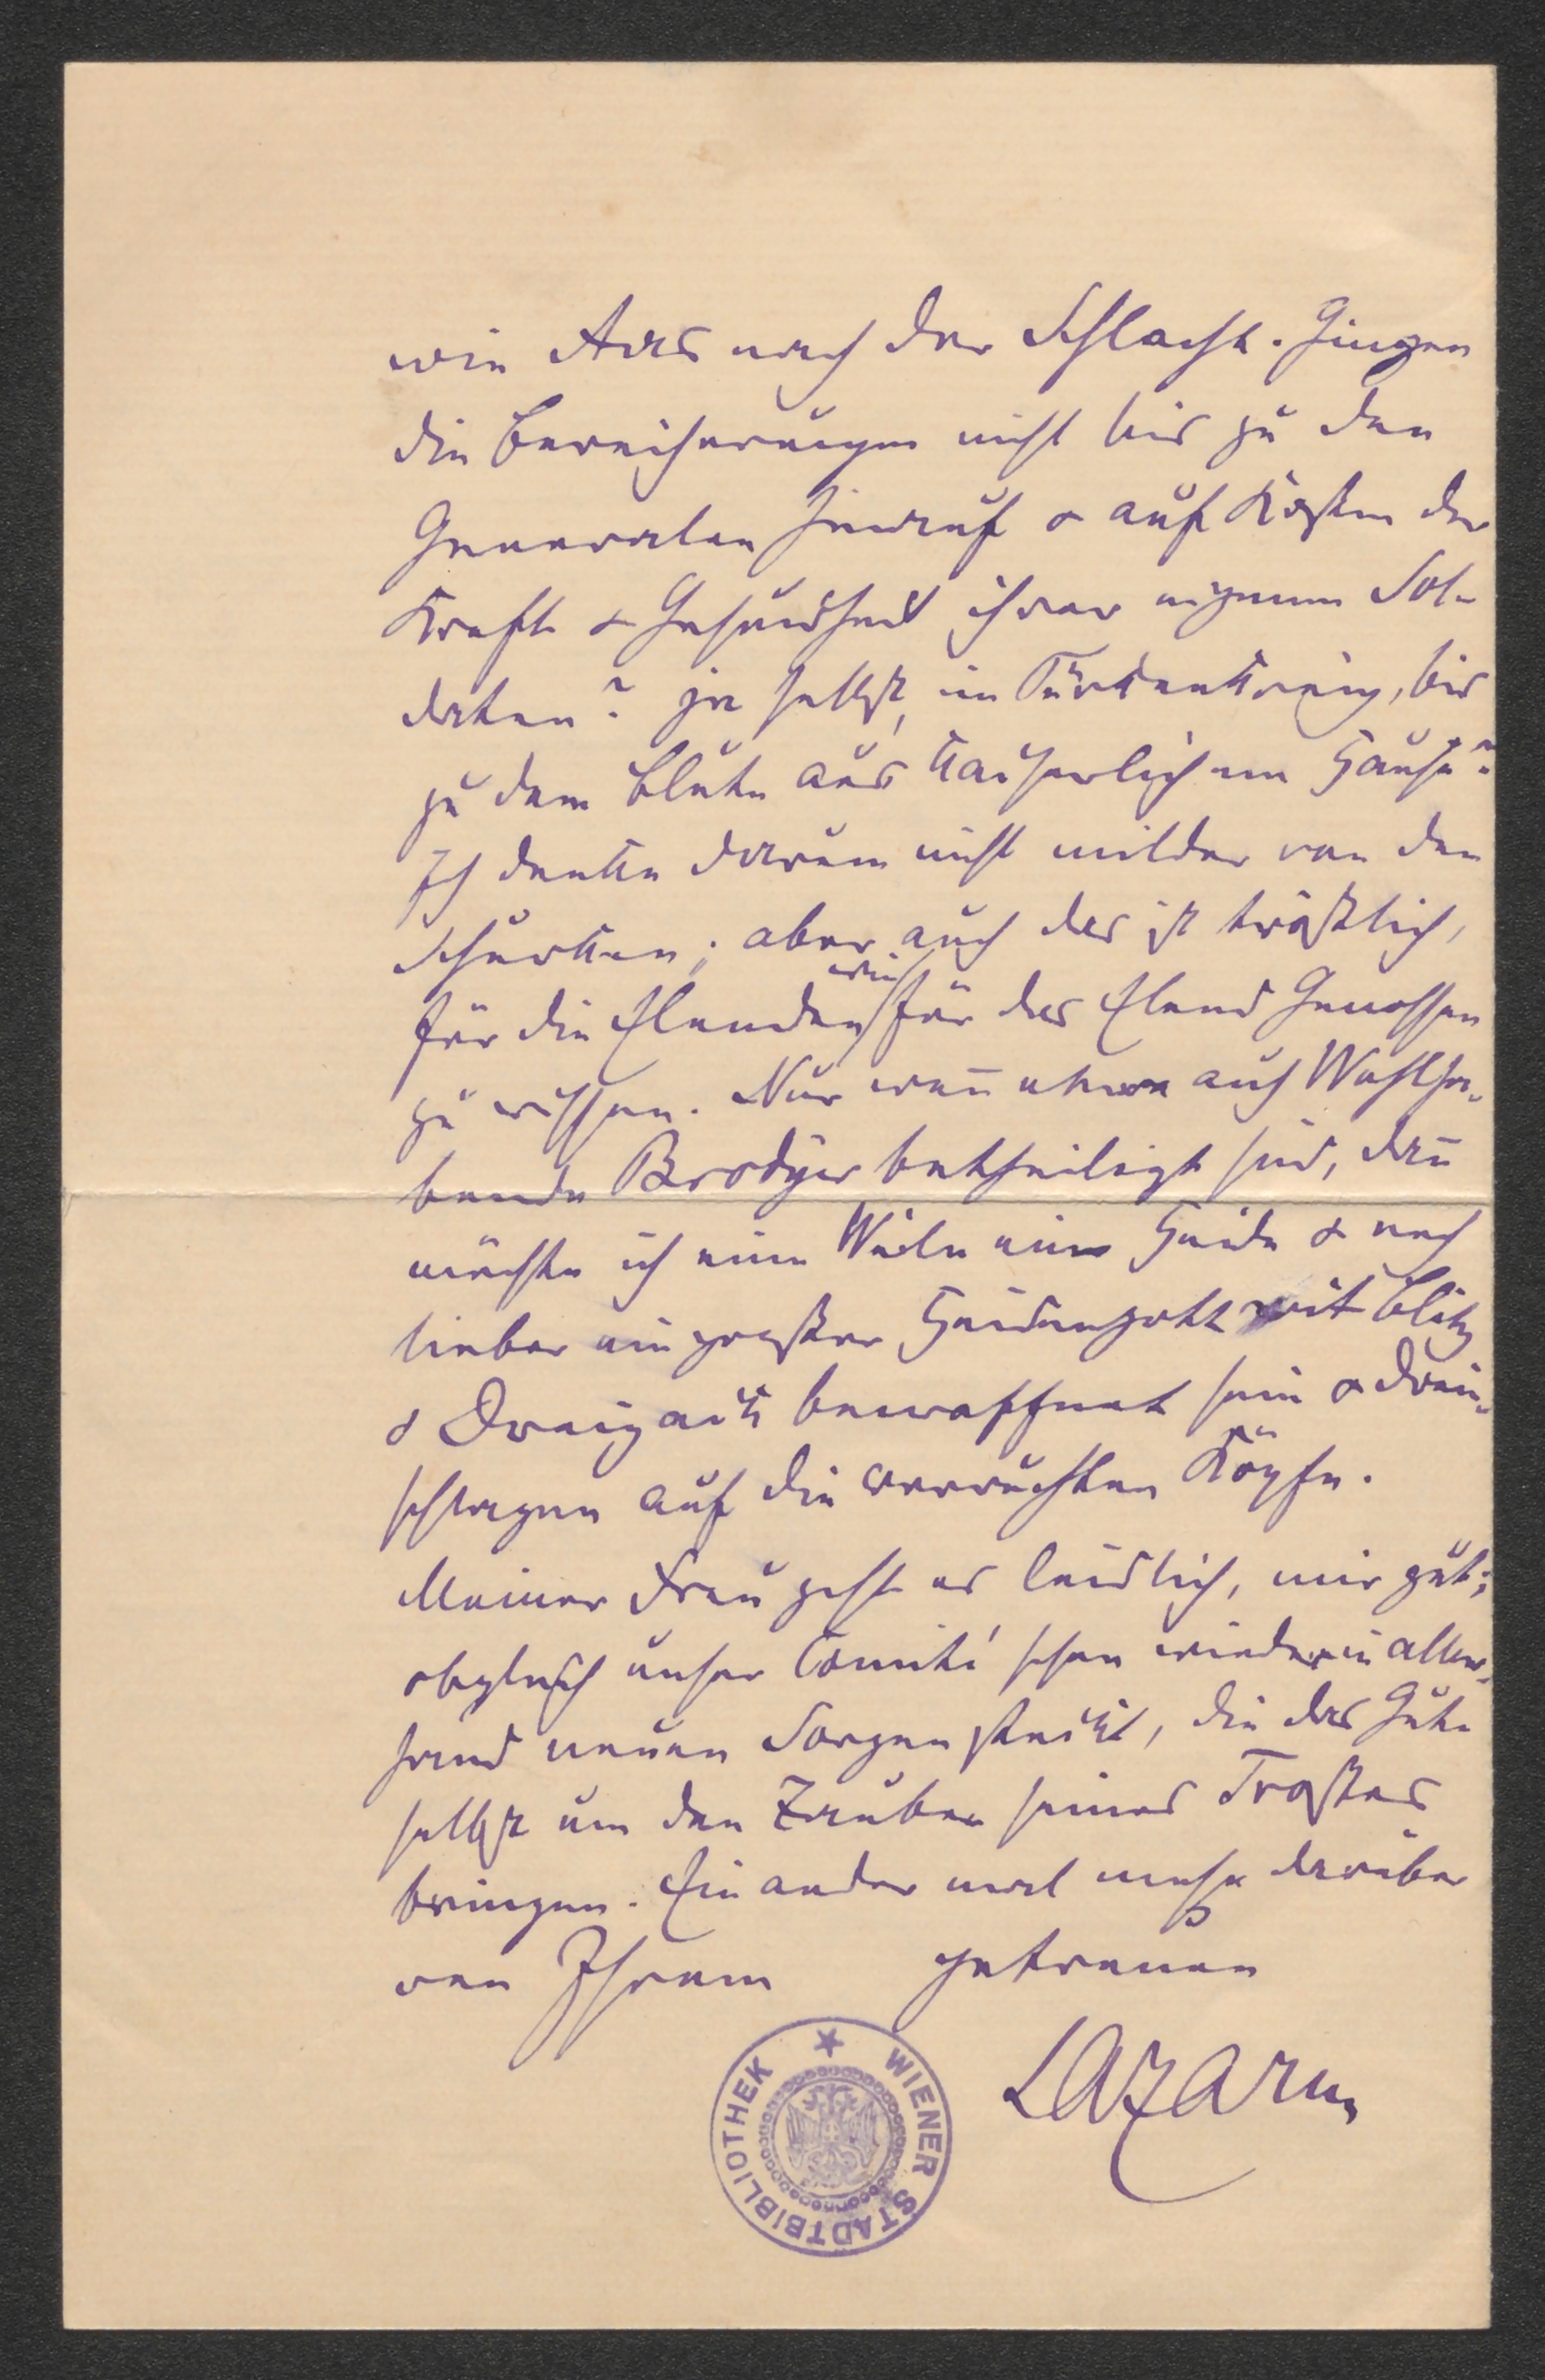 wie Aas nach der Schlacht. Gingen
die Bereicherungen nicht bis zu den
Generalen hinauf & auf Kosten der
Kraft & Gesundheit ihrer eigenen Sol-
daten? ja selbst, im Türkenkrieg, bis
zu dem Blute aus kaiserlichem Hause?
Ich denke darum nicht milder von den
Schurken; aber auch das ist tröstlich,
für die Elenden wie für das Elend Genossen
zu wissen. Nur weñ etwa auch Wohlha-
bende Brodyer betheiligt sind, dañ
möchte ich eine Weile ein Heide & noch
lieber ein großer Heidengott mit Blitz
& Dreizack bewaffnet sein & drein-
schlagen auf die verruchten Köpfe.
Meiner Frau geht es leidlich, mir gut;
obgleich unser Comité schon wieder in aller-
hand neuen Sorgen steckt, die das Gute
selbst um den Zauber seines Trostes
bringen. Ein ander mal mehr darüber
von Ihrem getreuen
Lazarus
WIENER STADTBIBLIOTHEK